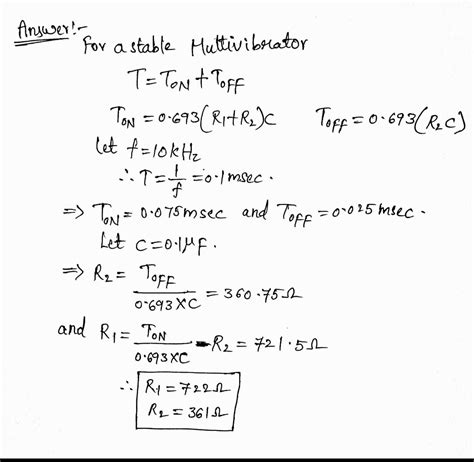 Answer:-
For astable Multivibrator
T = TON + TOFF
TON = 0.693(R1+R2)C TOFF = 0.693(R2C)
Let f=10kHz
∴ T = 1/f = 0.1 msec.
⇒ TON = 0.075msec and TOFF = 0.025msec.
Let C=0.1μF.
⇒ R2 = TOFF / 0.693XC = 360.75Ω
and R1 = TON / 0.693XC - R2 = 721.5Ω
∴ R1 = 722Ω
R2 = 361Ω